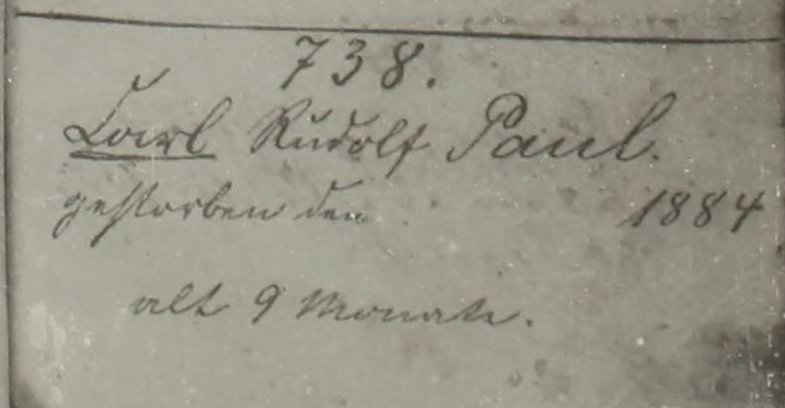 738.
Carl Rudolf Paul.
gestorben den 1884
alt 9 Monate.